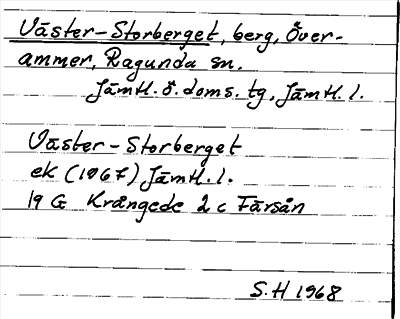 Väster-Storberget, berg, Över-
ammer, Ragunda sn.
Jämtl. ö. doms. tg, Jämtl. l.
Väster-Storberget
ek (1967) Jämtl. l.
19 G Krångede 2 c Färsån
S.H 1968